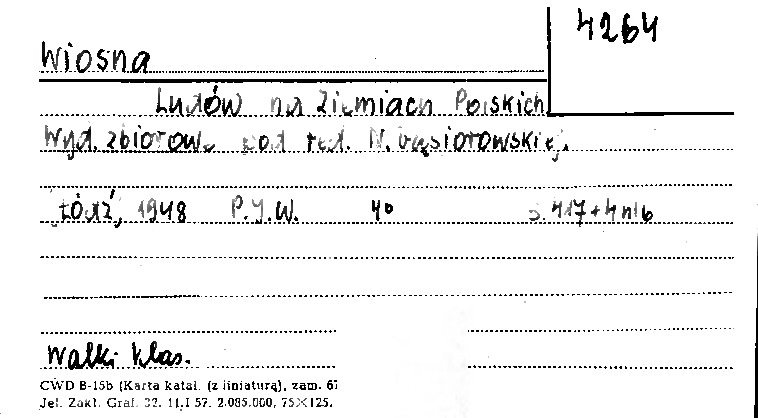 4264
Wiosna
Ludów na Ziemiach Polskich
Wyd. zbiorow. pod red. N. Gąsiorowskiej.
Łódź, 1948 P.I.W. 4° s. 417+4nlb
Walki klas.
CWD B-15b (Karta katal. (z liniaturą), zam. 67
Jel. Zakł. Graf. 32. 11.I 57. 2.085.000, 75×125.